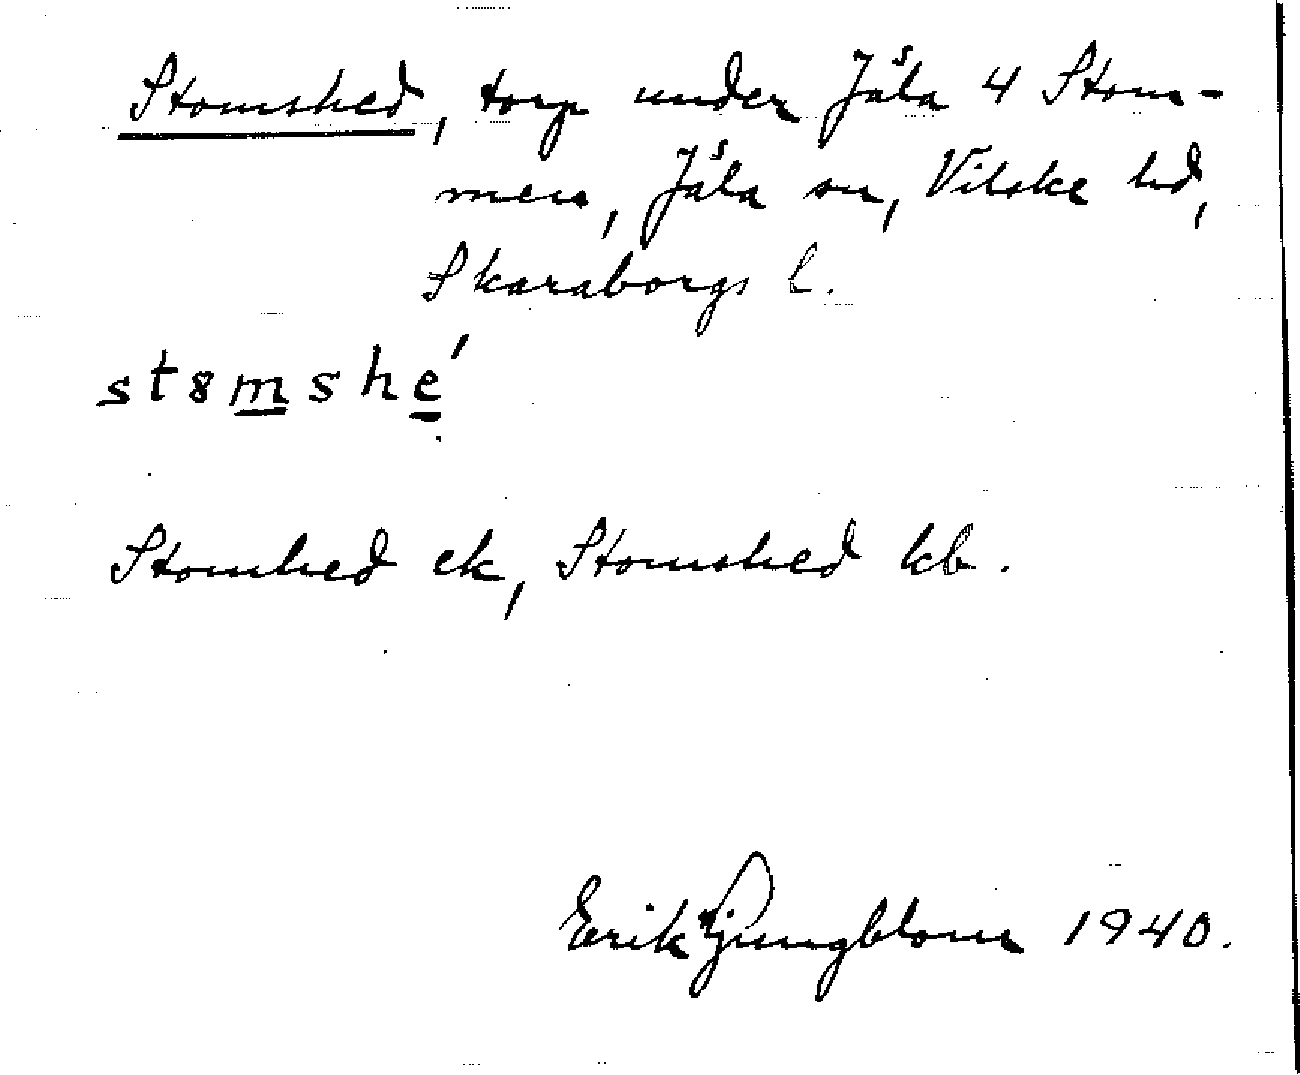 Stomshed, torp under Jäla 4 Stom-
men, Jäla sn, Vilske hd,
Skaraborgs l.
st8mshe´
Stomhed ek, Stomshed kb.
Erik Ljungblom 1940.